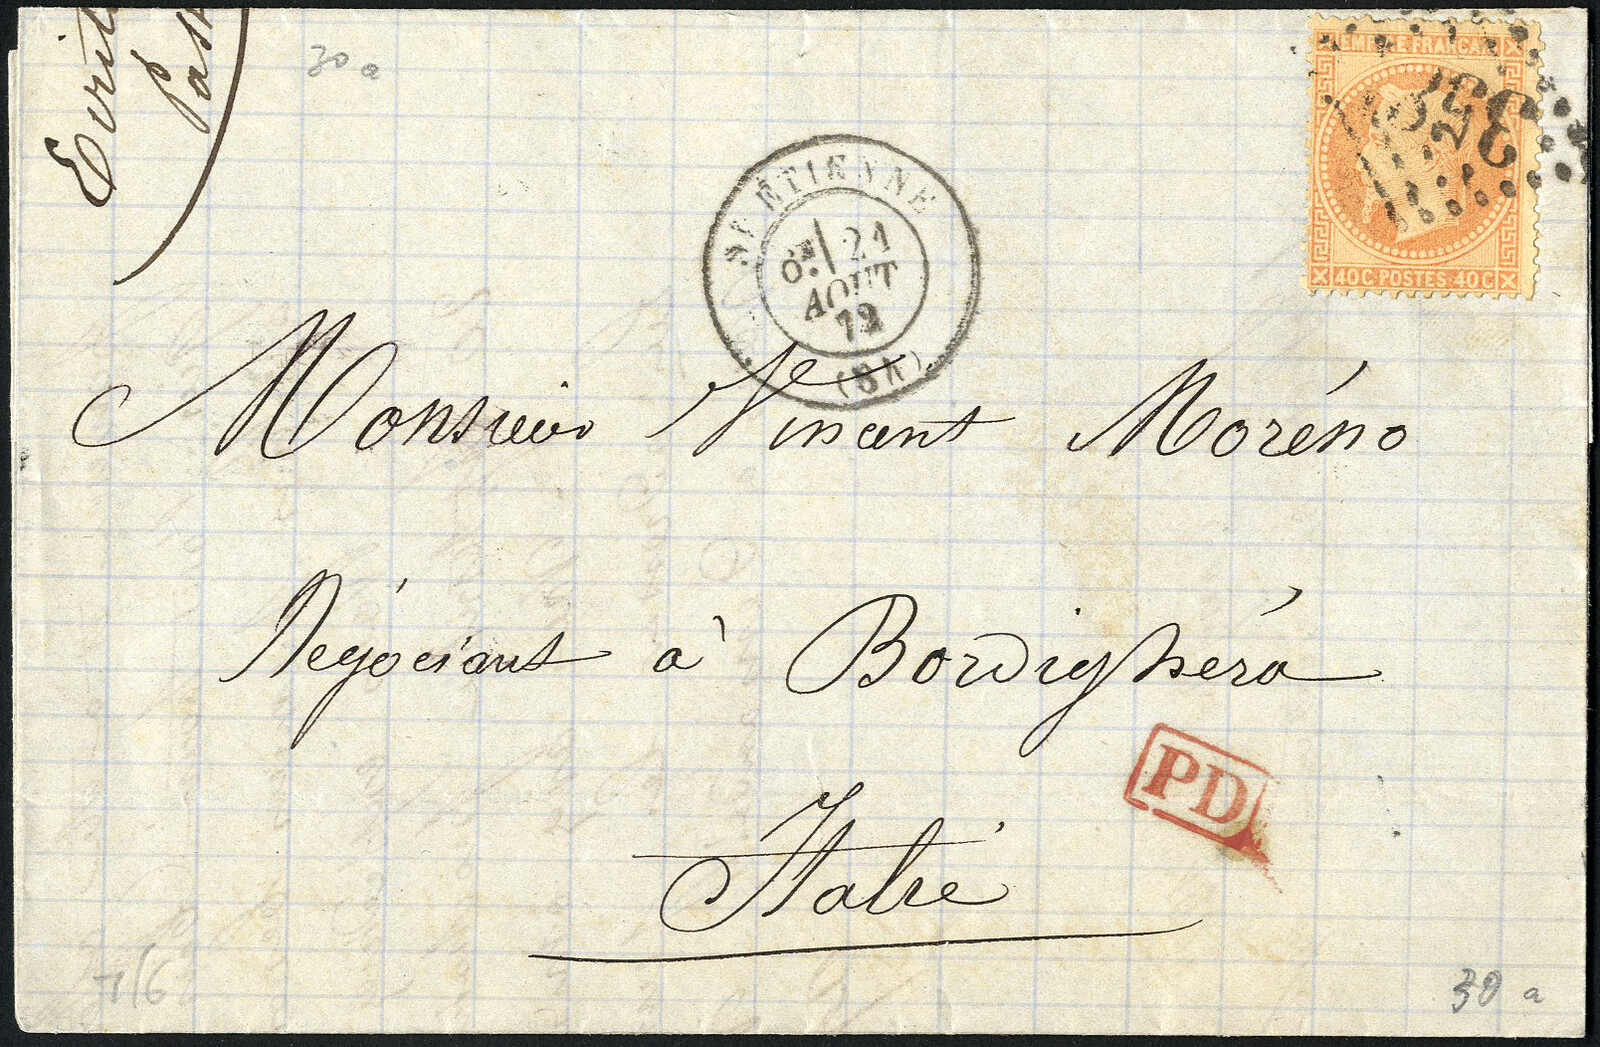 30 a
EMPIRE FRANCAIS
40 C. POSTES 40 C
ST ETIENNE
6E 21
AOUT
72
Monsieur Vincent Moréno
Négociant à Bordighéra
PD
Italie
30 a